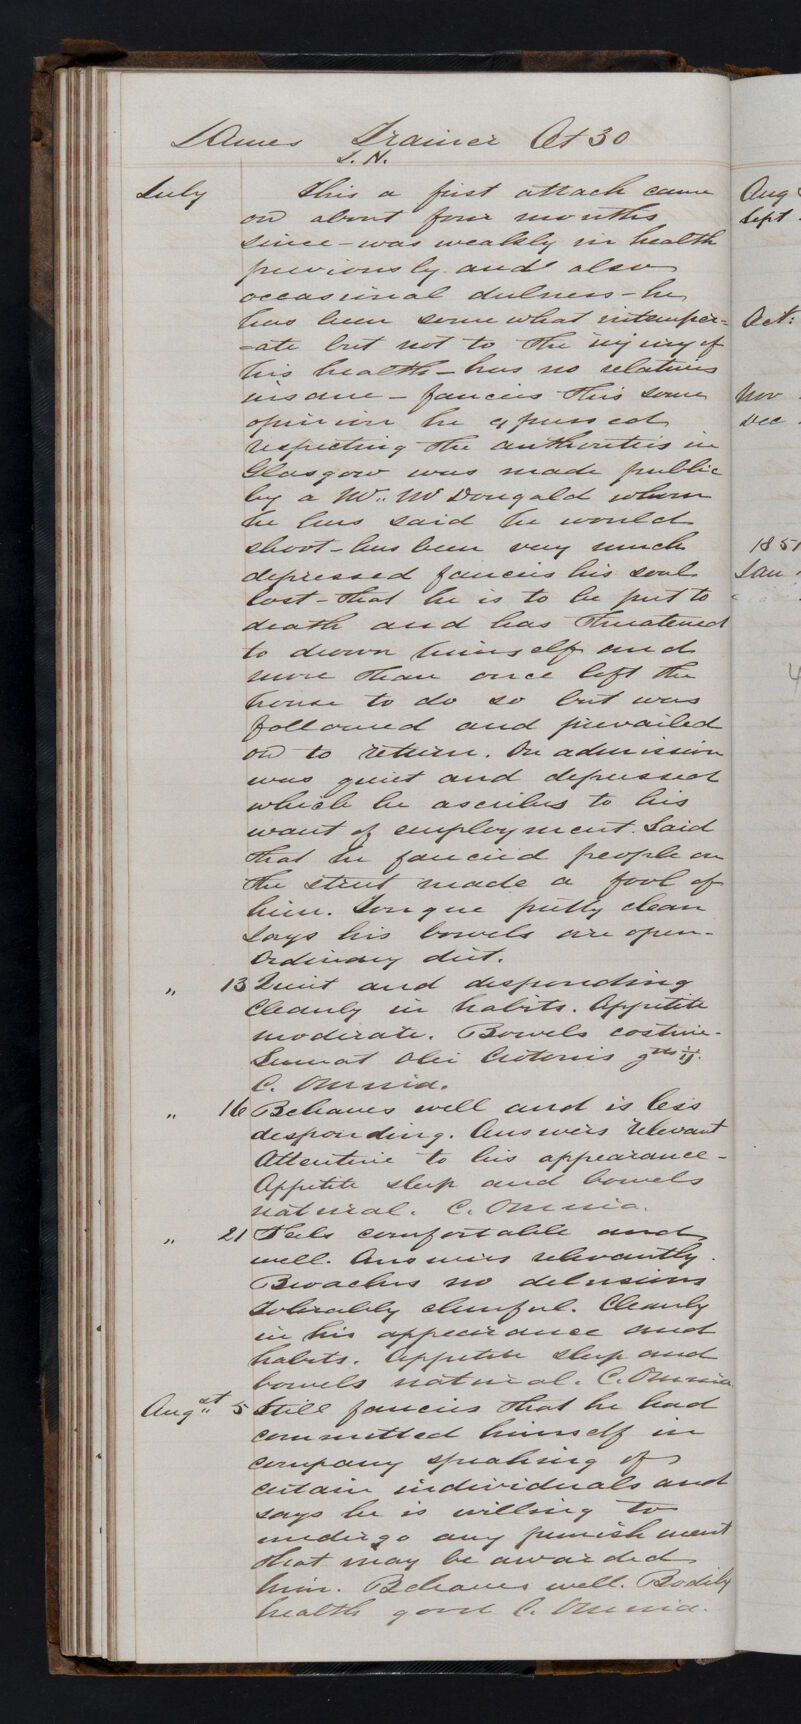 James Trainer Æt 30
S. N.
July This a first attack came
on about four months
since - was weakly in health
previously and also
occasional dulness - he
has been somewhat intemper=
=ate but not to the injury of
his health - has no relatives
insane - fancies this some
opinion he expressed
respecting the authorities in
Glasgow was made public
by a Mr. Mc Dougald whom
he has said he would
shoot - has been very much
depressed fancies his soul
lost - that he is to be put to
death and has threatened
to drown himself and
more than once left the
house to do so but was
followed and prevailed
on to return. On admission
was quiet and depressed
which he ascribes to his
want of employment. Said
that he fancied people on
the street made a fool of
him. Tongue pretty clean
Says his bowels are open -
Ordinary diet.
" 13 Quiet and desponding
Cleanly in habits. Appetite
moderate. Bowels costive -
Sumat Olei Crotonis gtts ij.
C. Omnia.
" 16 Behaves well and is less
desponding. Answers relevant
Attentive to his appearance -
Appetite sleep and bowels
natural. C. Omnia.
" 21 Feels comfortable and
well. Answers relevantly.
Broaches no delusions
Tolerably cheerful. Cleanly
in his appearance and
habits. Appetite sleep and
bowels natural. C. Omnia
Augst 5 Still fancies that he had
committed himself in
company speaking of
certain individuals and
says he is willing to
undergo any punishment
that may be awarded
him. Behaves well. Bodily
health good C. Omnia.
Aug
Sept
Oct:
Nov
Dec
1851
Jan
4